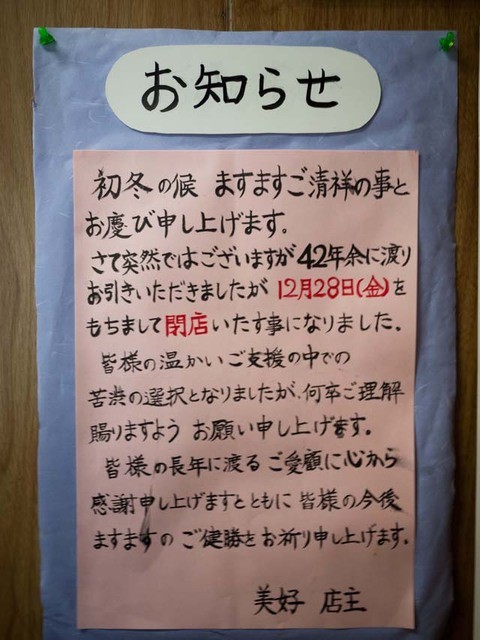 お知らせ
初冬の候 ますますご清祥の事と
お慶び申し上げます。
さて突然ではございますが 42年余に渡り
お引きいただきましたが 12月28日(金)を
もちまして閉店いたす事になりました.
皆様の温かいご支援の中での
苦渋の選択となりましたが、何卒ご理解
賜りますよう お願い申し上げます。
皆様の長年に渡る ご愛顧に心から
感謝申し上げますとともに 皆様の今後
ますますの ご健勝をお祈り申し上げます.
美好 店主